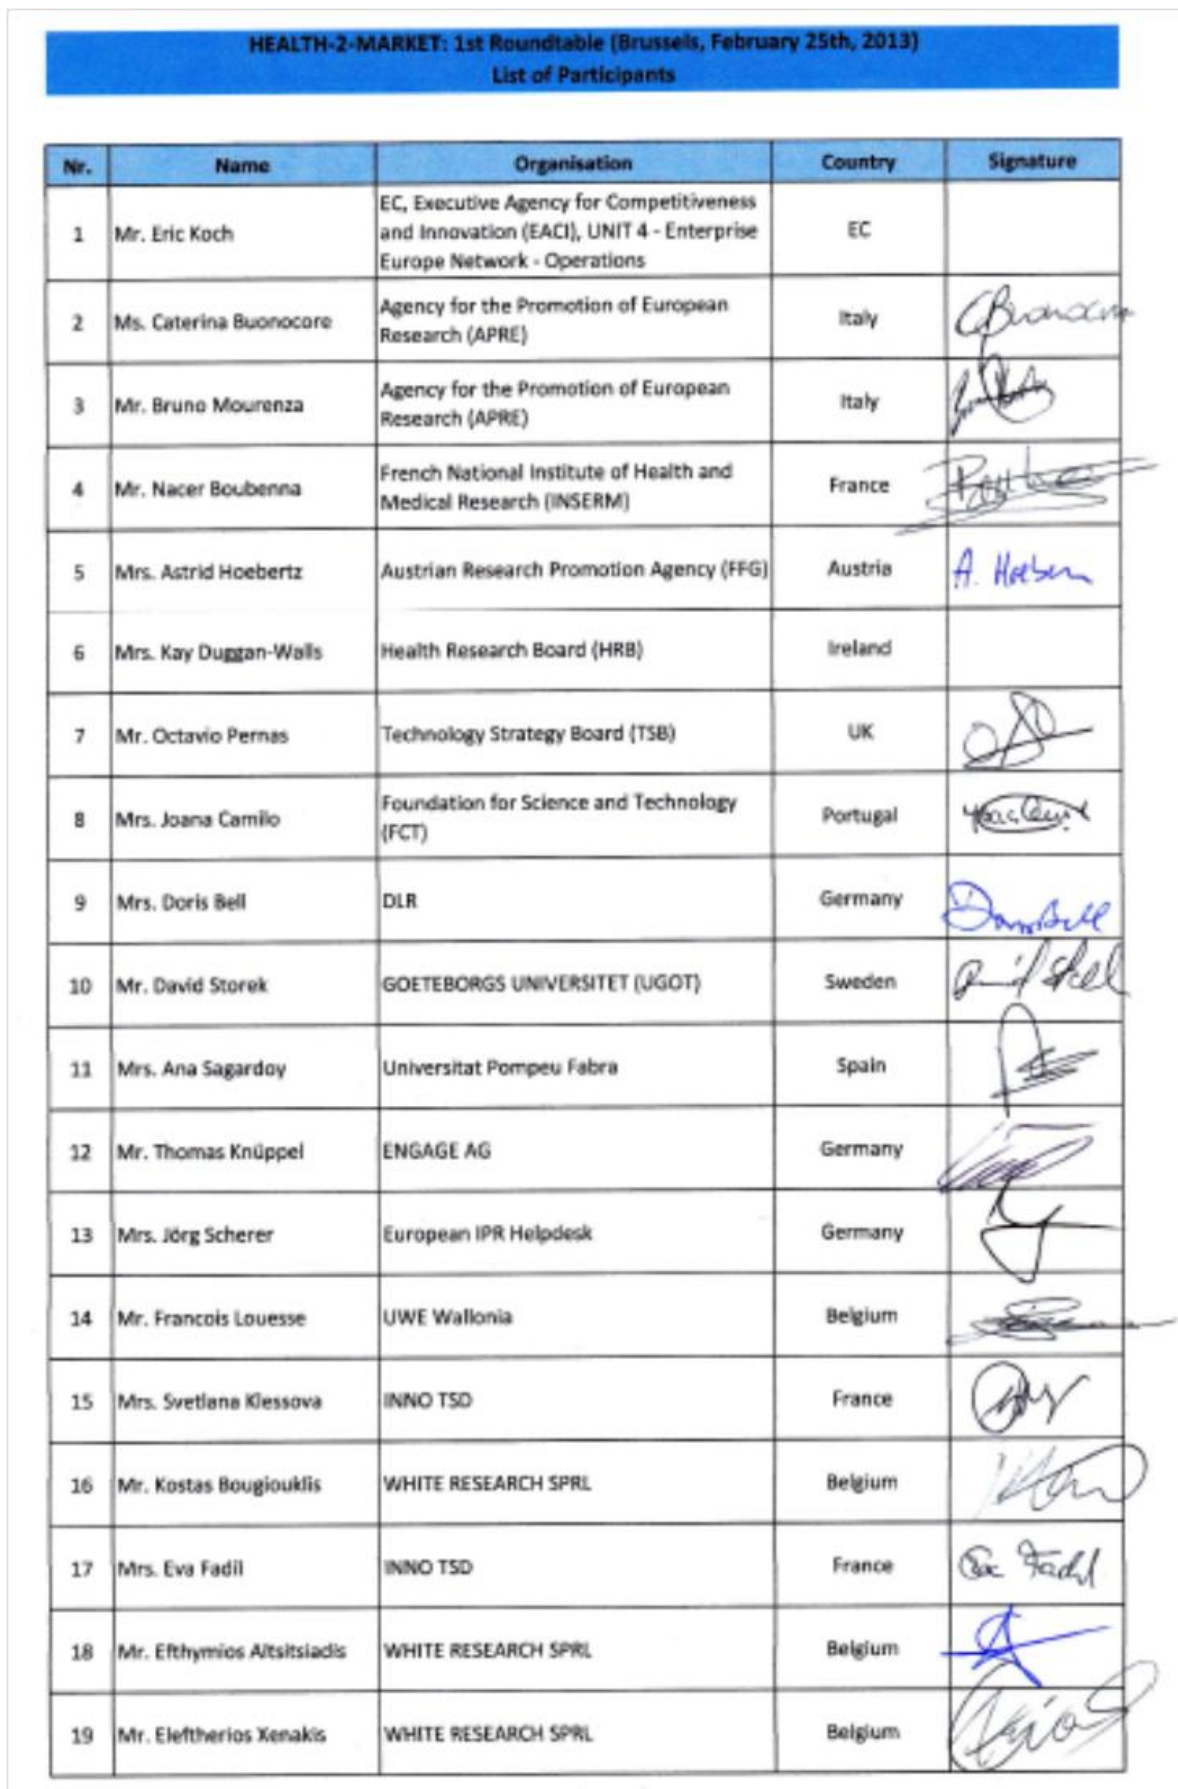 HEALTH-2-MARKET: 1st Roundtable (Brussels, February 25th, 2013)
List of Participants
Nr. Name Organisation Country Signature
1 Mr. Eric Koch EC, Executive Agency for Competitiveness and Innovation (EACI), UNIT 4 - Enterprise Europe Network - Operations EC
2 Ms. Caterina Buonocore Agency for the Promotion of European Research (APRE) Italy
3 Mr. Bruno Mourenza Agency for the Promotion of European Research (APRE) Italy
4 Mr. Nacer Boubenna French National Institute of Health and Medical Research (INSERM) France
5 Mrs. Astrid Hoebertz Austrian Research Promotion Agency (FFG) Austria
6 Mrs. Kay Duggan-Walls Health Research Board (HRB) Ireland
7 Mr. Octavio Pernas Technology Strategy Board (TSB) UK
8 Mrs. Joana Camilo Foundation for Science and Technology (FCT) Portugal
9 Mrs. Doris Bell DLR Germany
10 Mr. David Storek GOETEBORGS UNIVERSITET (UGOT) Sweden
11 Mrs. Ana Sagardoy Universitat Pompeu Fabra Spain
12 Mr. Thomas Knüppel ENGAGE AG Germany
13 Mrs. Jörg Scherer European IPR Helpdesk Germany
14 Mr. Francois Louesse UWE Wallonia Belgium
15 Mrs. Svetlana Klessova INNO TSD France
16 Mr. Kostas Bougiouklis WHITE RESEARCH SPRL Belgium
17 Mrs. Eva Fadil INNO TSD France
18 Mr. Efthymios Altsitsiadis WHITE RESEARCH SPRL Belgium
19 Mr. Eleftherios Xenakis WHITE RESEARCH SPRL Belgium